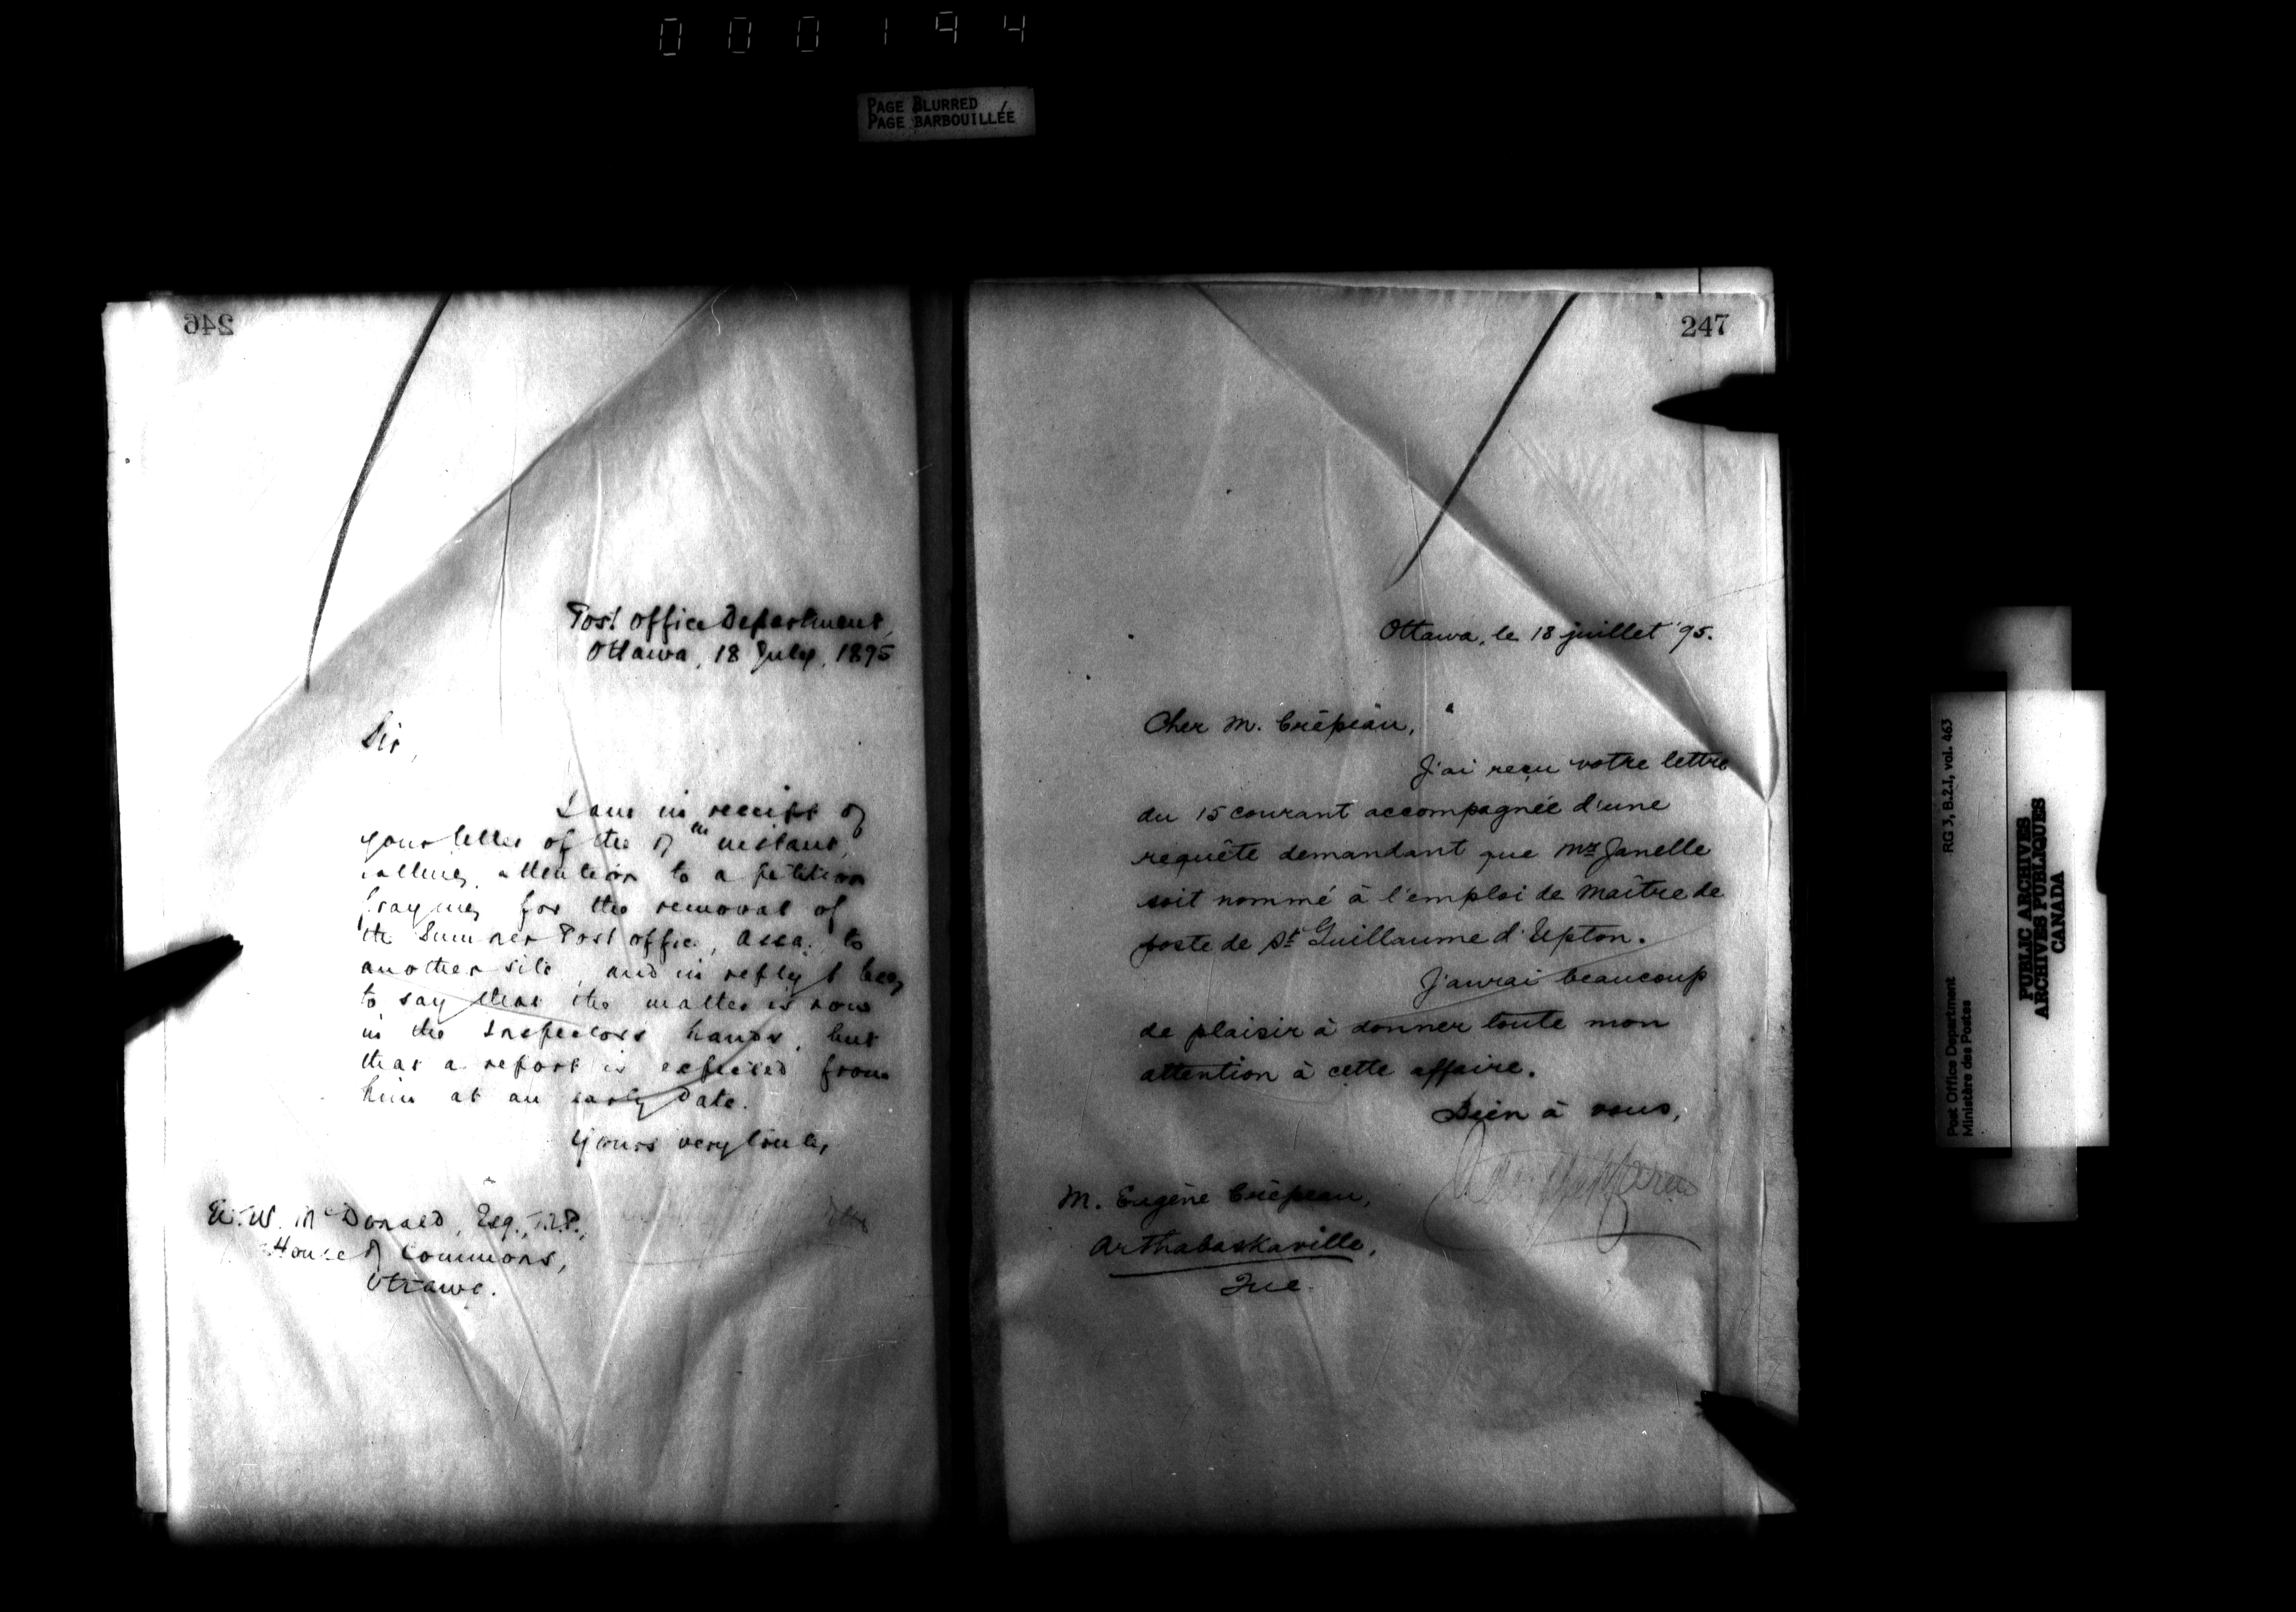 000194
PAGE BLURRED
PAGE BARBOUILLÉE
246
Post Office Department,
Ottawa, 18 July, 1895
Sir,
I am in receipt of
your letter of the instant,
calling attention to a petition
praying for the removal of
the Sumner Post office, Assa. to
another site, and in reply I beg
to say that the matter is now
in the Inspectors hands, but
that a report is expected from
him at an early date.
Yours very truly,
W. McDonald, Esq., M.P.,
House of Commons,
Ottawa.
247
Ottawa, le 18 juillet '95.
Cher M. Crépeau,
J'ai reçu votre lettre
du 15 courant accompagnée d'une
requête demandant que Mr Janelle
soit nommé à l'emploi de Maître de
poste de St Guillaume d'Upton.
J'aurai beaucoup
de plaisir à donner toute mon
attention à cette affaire.
Bien à vous,
M. Eugène Crépeau,
Arthabaskaville,
Que.
Post Office Department
Ministère des Postes
RG 3, B.2.1, vol. 463
PUBLIC ARCHIVES
ARCHIVES PUBLIQUES
CANADA